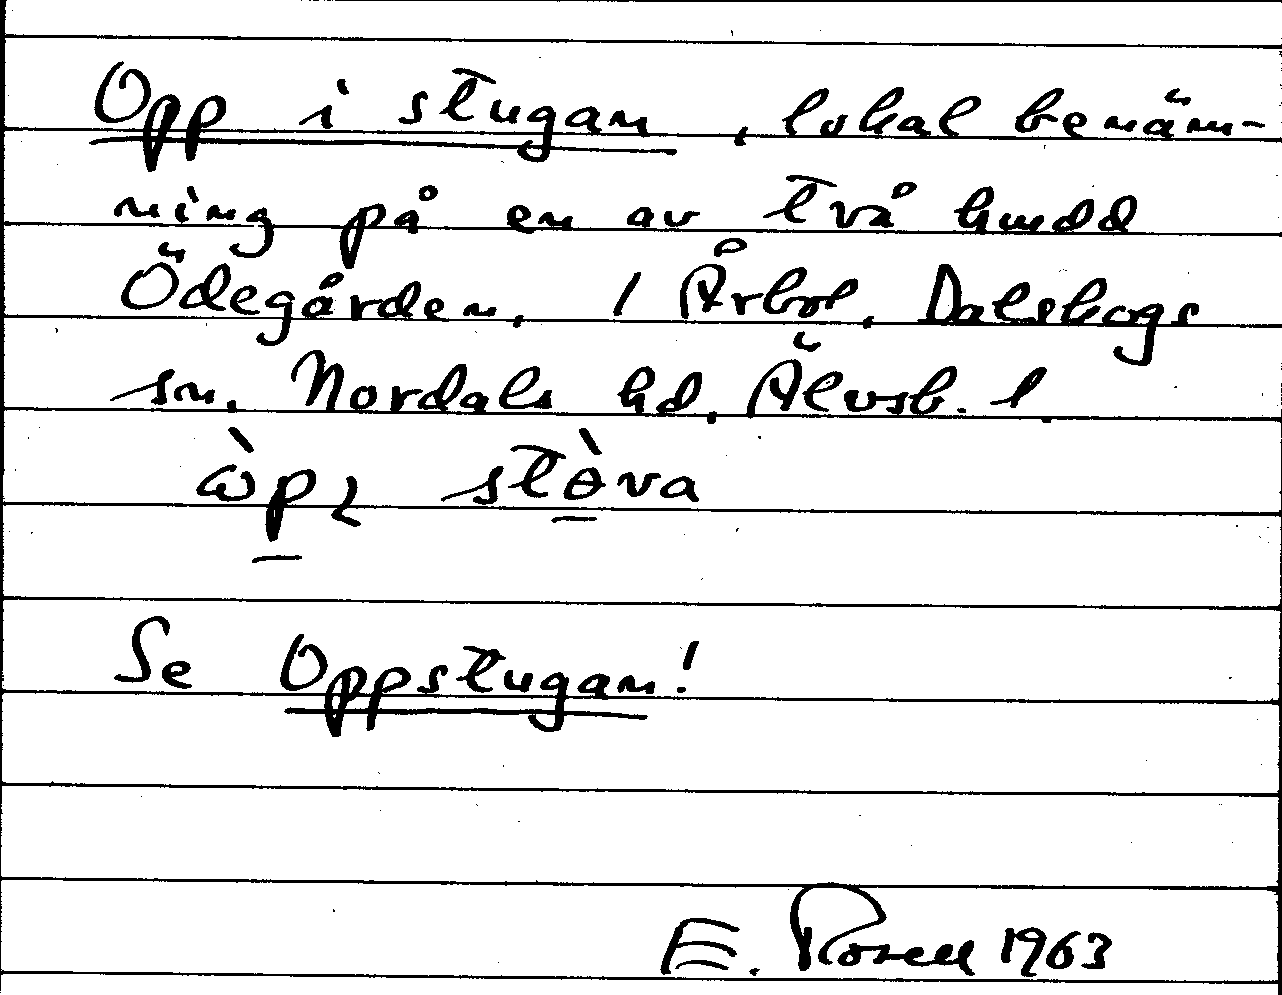 Opp i stugan, lokal benäm-
ning på en av två hmdd
Ödegården, 1 Årbol, Dalskogs
sn. Nordals hd. Älvsb. l.
stòva
Se Oppstugan!
E. Rosell 1963